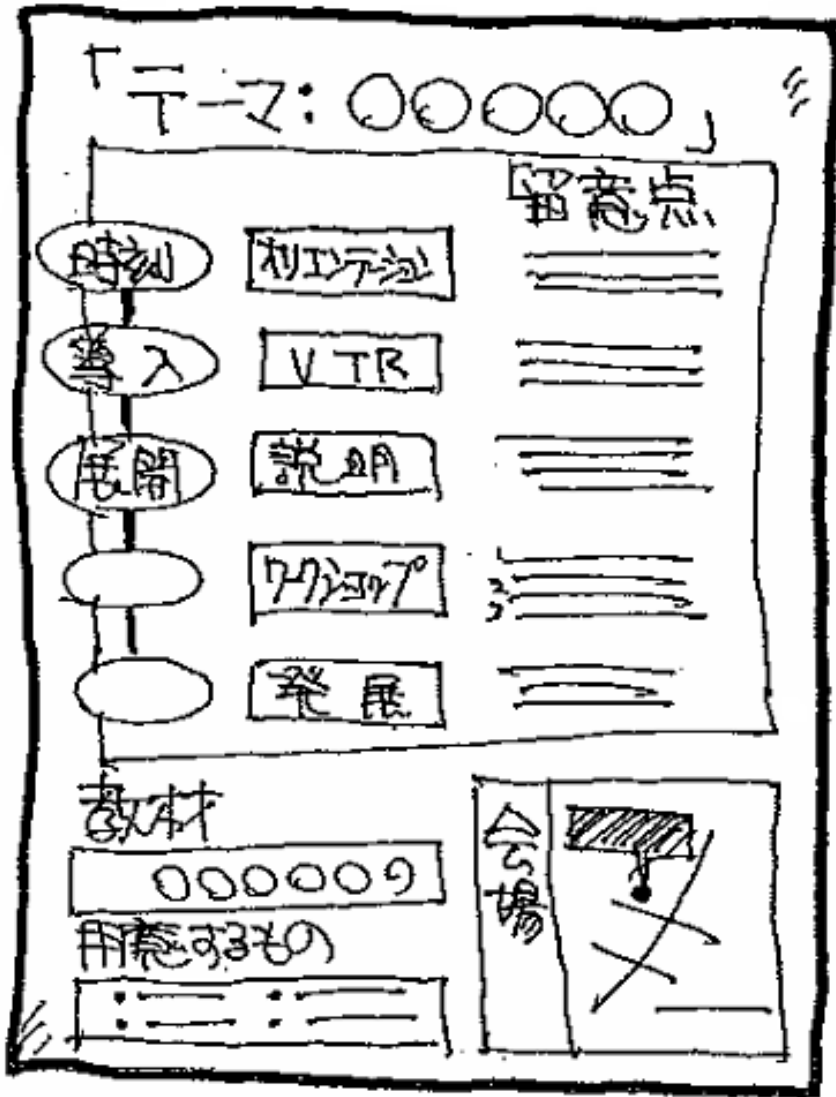 「テーマ:○○○○○」
留意点
時刻 オリエンテーション
導入 VTR
展開 説明
ワークショップ
発展
教材
○○○○○の
用意するもの
会場